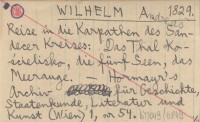 WILHELM Andreas 1829.
Reise in die Karpathen des San-
decer Kreises: Das Thal Ko-
scielisko, die fünf Seen, das
Meerauge. — Hormayr's
Archiv für Geschichte,
Staatenkunde, Literatur und
Kunst (Wien) 1, nr 54.